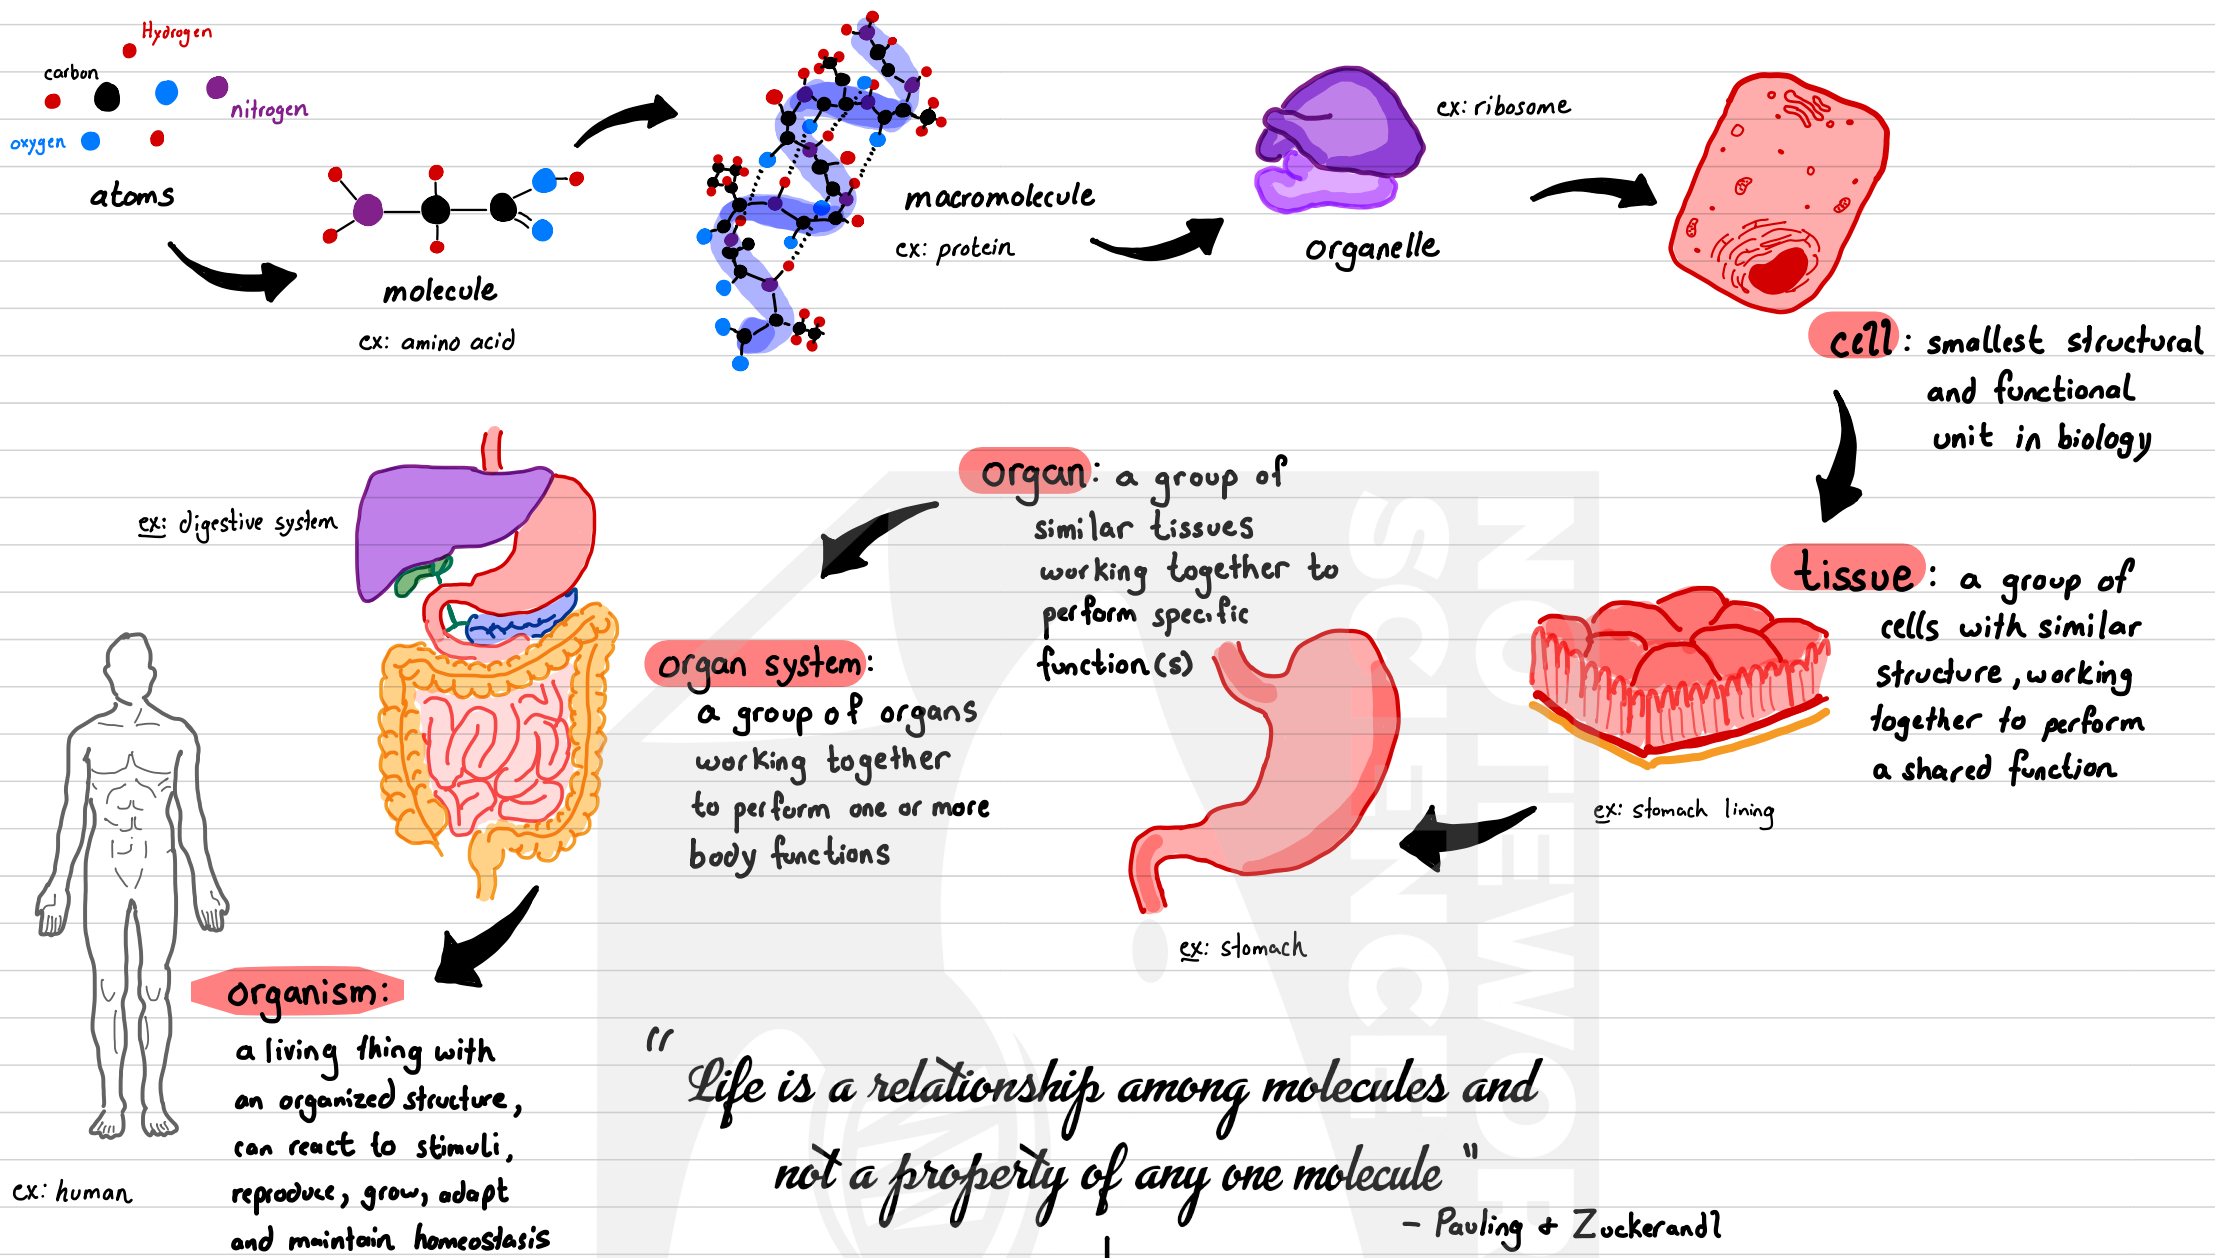 Hydrogen
carbon
nitrogen
oxygen
atoms
molecule
ex: amino acid
macromolecule
ex: protein
ex: ribosome
organelle
cell: smallest structural
and functional
unit in biology
tissue: a group of
cells with similar
structure, working
together to perform
a shared function
ex: stomach lining
organ: a group of
similar tissues
working together to
perform specific
function(s)
ex: stomach
organ system:
a group of organs
working together
to perform one or more
body functions
ex: digestive system
organism:
a living thing with
an organized structure,
can react to stimuli,
reproduce, grow, adapt
and maintain homeostasis
ex: human
"Life is a relationship among molecules and
not a property of any one molecule"
- Pauling + Zuckerandl
SCIENCE